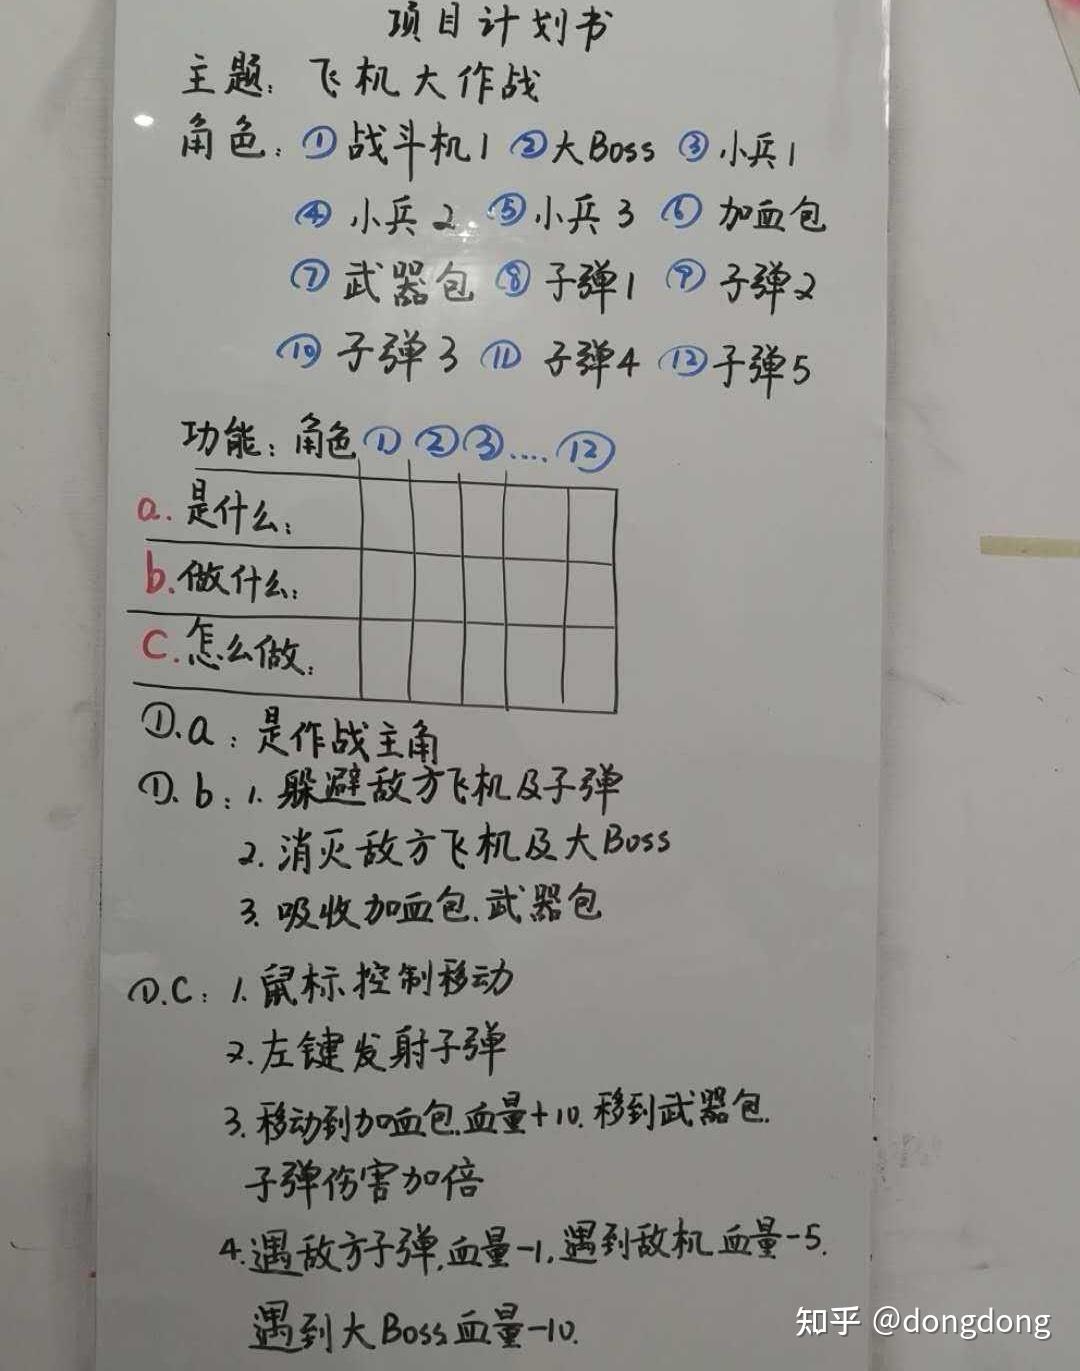 项目计划书
主题：飞机大作战
角色：①战斗机1 ②大Boss ③小兵1
④小兵2 ⑤小兵3 ⑥加血包
⑦武器包 ⑧子弹1 ⑨子弹2
⑩子弹3 ⑪子弹4 ⑫子弹5
功能：角色①②③....⑫
a.是什么：
b.做什么：
c.怎么做：
①.a：是作战主角
①.b：1.躲避敌方飞机及子弹
2.消灭敌方飞机及大Boss
3.吸收加血包.武器包
①.C：1.鼠标控制移动
2.左键发射子弹
3.移动到加血包.血量+10.移到武器包.
子弹伤害加倍
4.遇敌方子弹.血量-1.遇到敌机血量-5.
遇到大Boss血量-10.
知乎 @dongdong